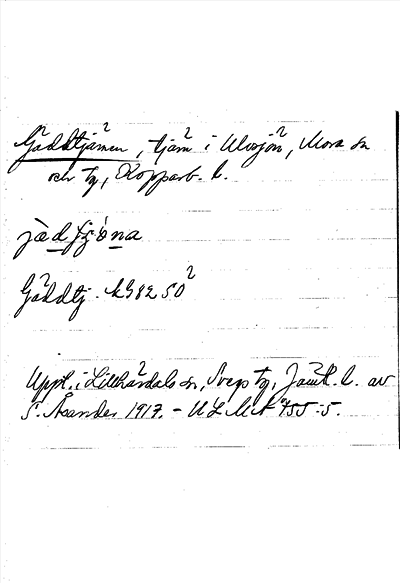 Gäddtjärnen, tjärn i Morjön, Mora sn
och tg, Kopparb. l.
jædfʒ̀òna
Gäddtj. kG 82 SO
Uppt. i Lillhärdals sn, Svegs tg, Jämtl. l. av
S. Åsander 1917. - ULMA 455:5.